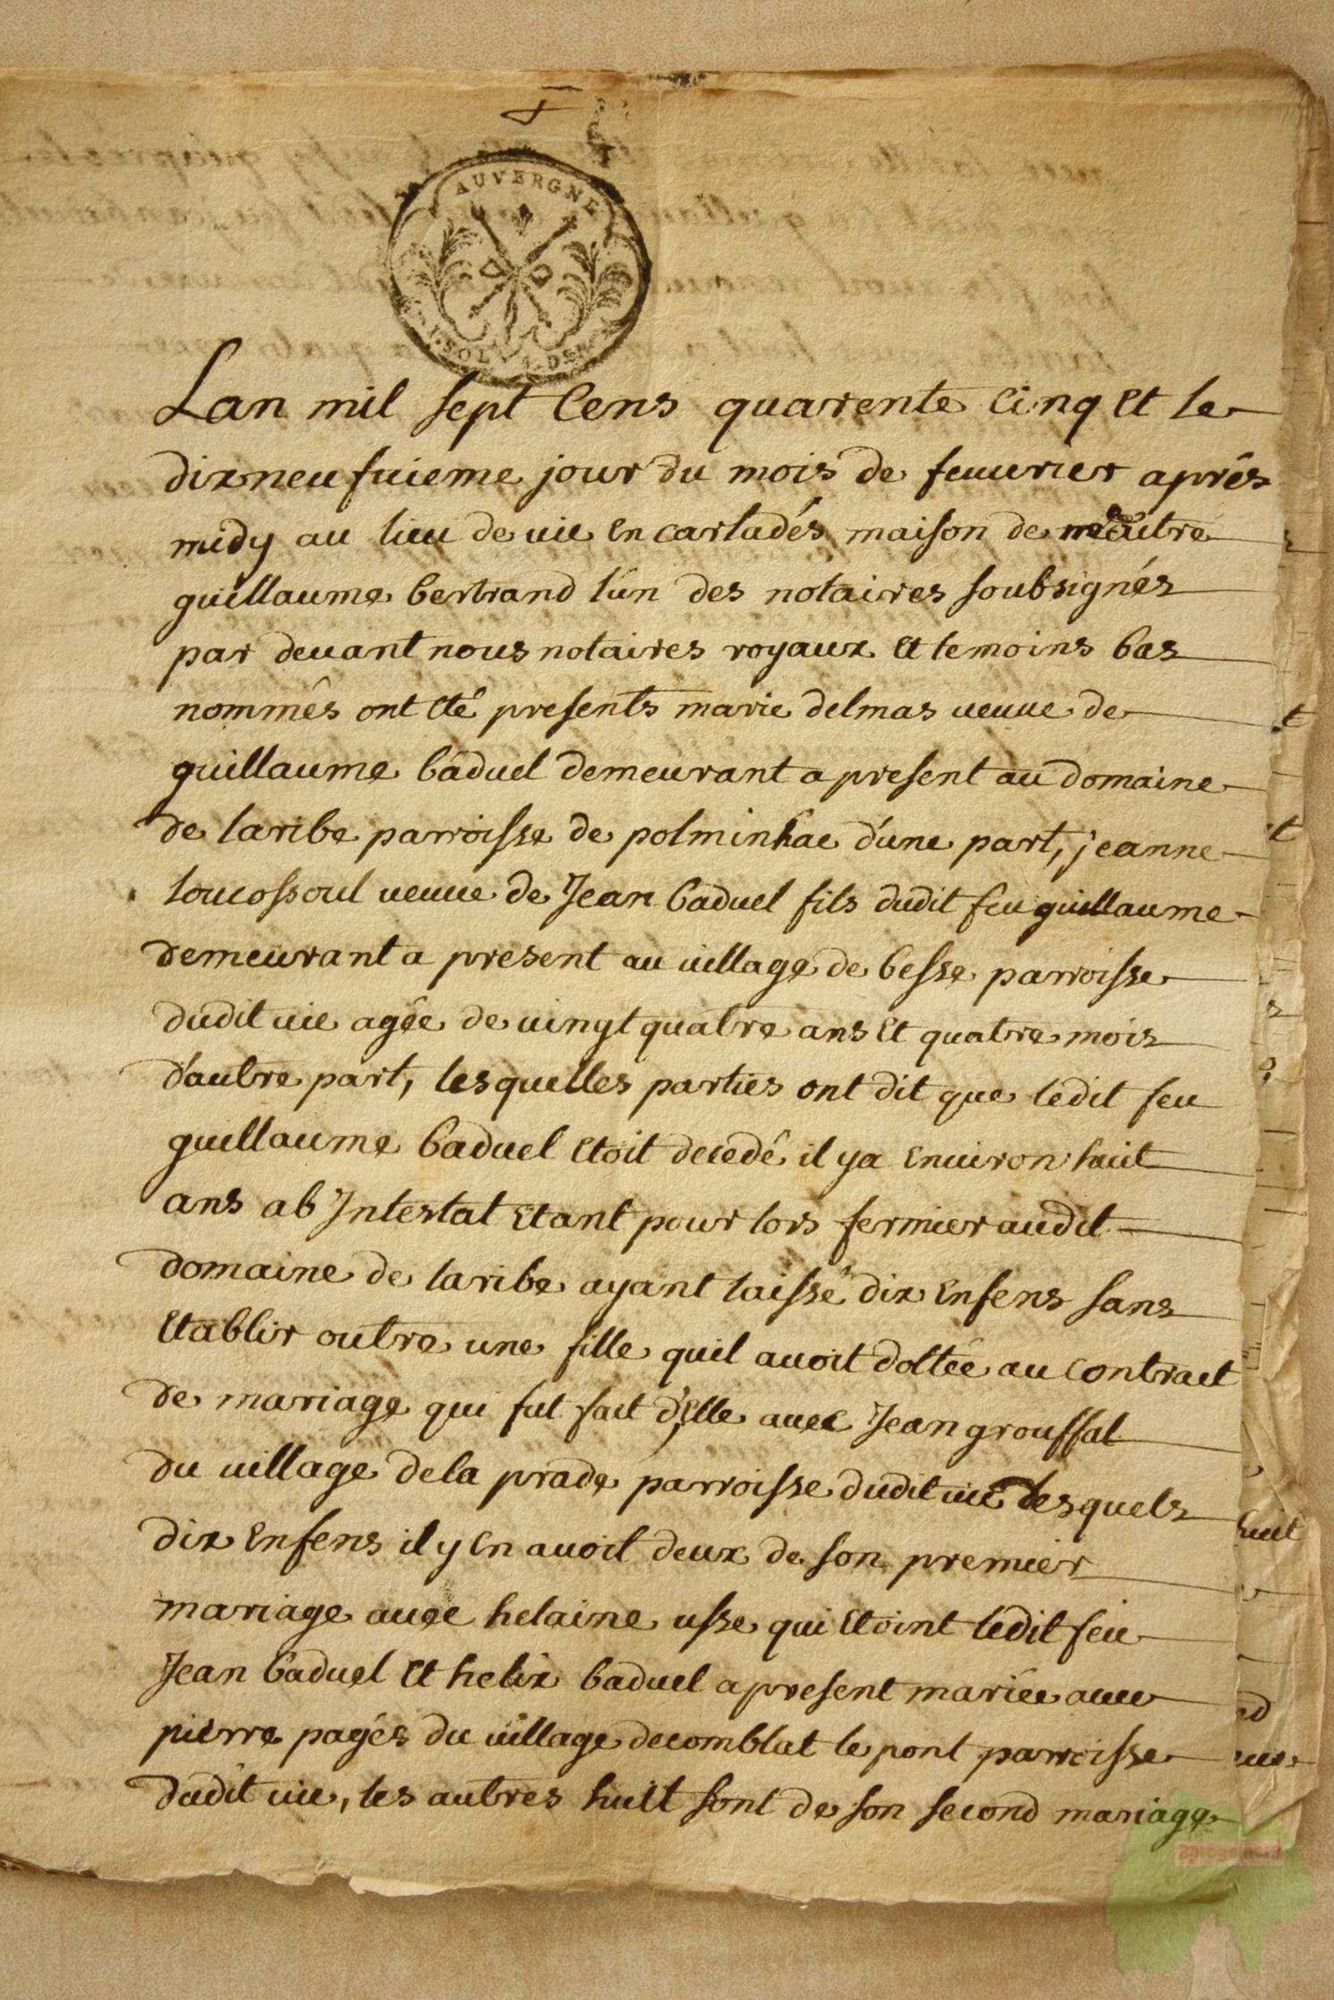 AUVERGNE
SOL
DEN
Lan mil sept Cens quarente Cinq Et le
dixneufuieme jour du mois de feuurier aprés
midy au lieu de vic En carladés maison de me autre
guillaume bertrand lún des notaires soubsignés
par deuant nous notaires royaux Et temoins bas
nommês ont Eté presents marie delmas ueuue de
guillaume baduel demeurant a present au domaine
de laribe parroisse de polminhac dúne part, jeanne
loucossoul ueuue de Jean baduel fils dudit feu guillaume
demeurant a present au uillage de besse parroisse
dudit uic agée de uingt quatre ans Et quatre mois
dáutre part, lesquelles parties ont dit que ledit feu
guillaume baduel Etoit decedé il ya Enuiron huit
ans ab Intestat Etant pour lors fermier audit
domaine de laribe ayant laissé dix Enfens sans
Etablir outre une fille quil auoit dottée au contract
de mariage qui fut fait d'Elle auec Jean groussal
du uillage dela prade parroisse dudit uic desquels
dix Enfens il y En auoit deux de son premier
mariage auec helaine usse qui Etoint ledit feu
Jean baduel Et helix baduel a present mariée auec
pierre pagés du uillage decomblat le pont parroisse
dudit uic, les autres huit sont de son second mariage
t
t
huit